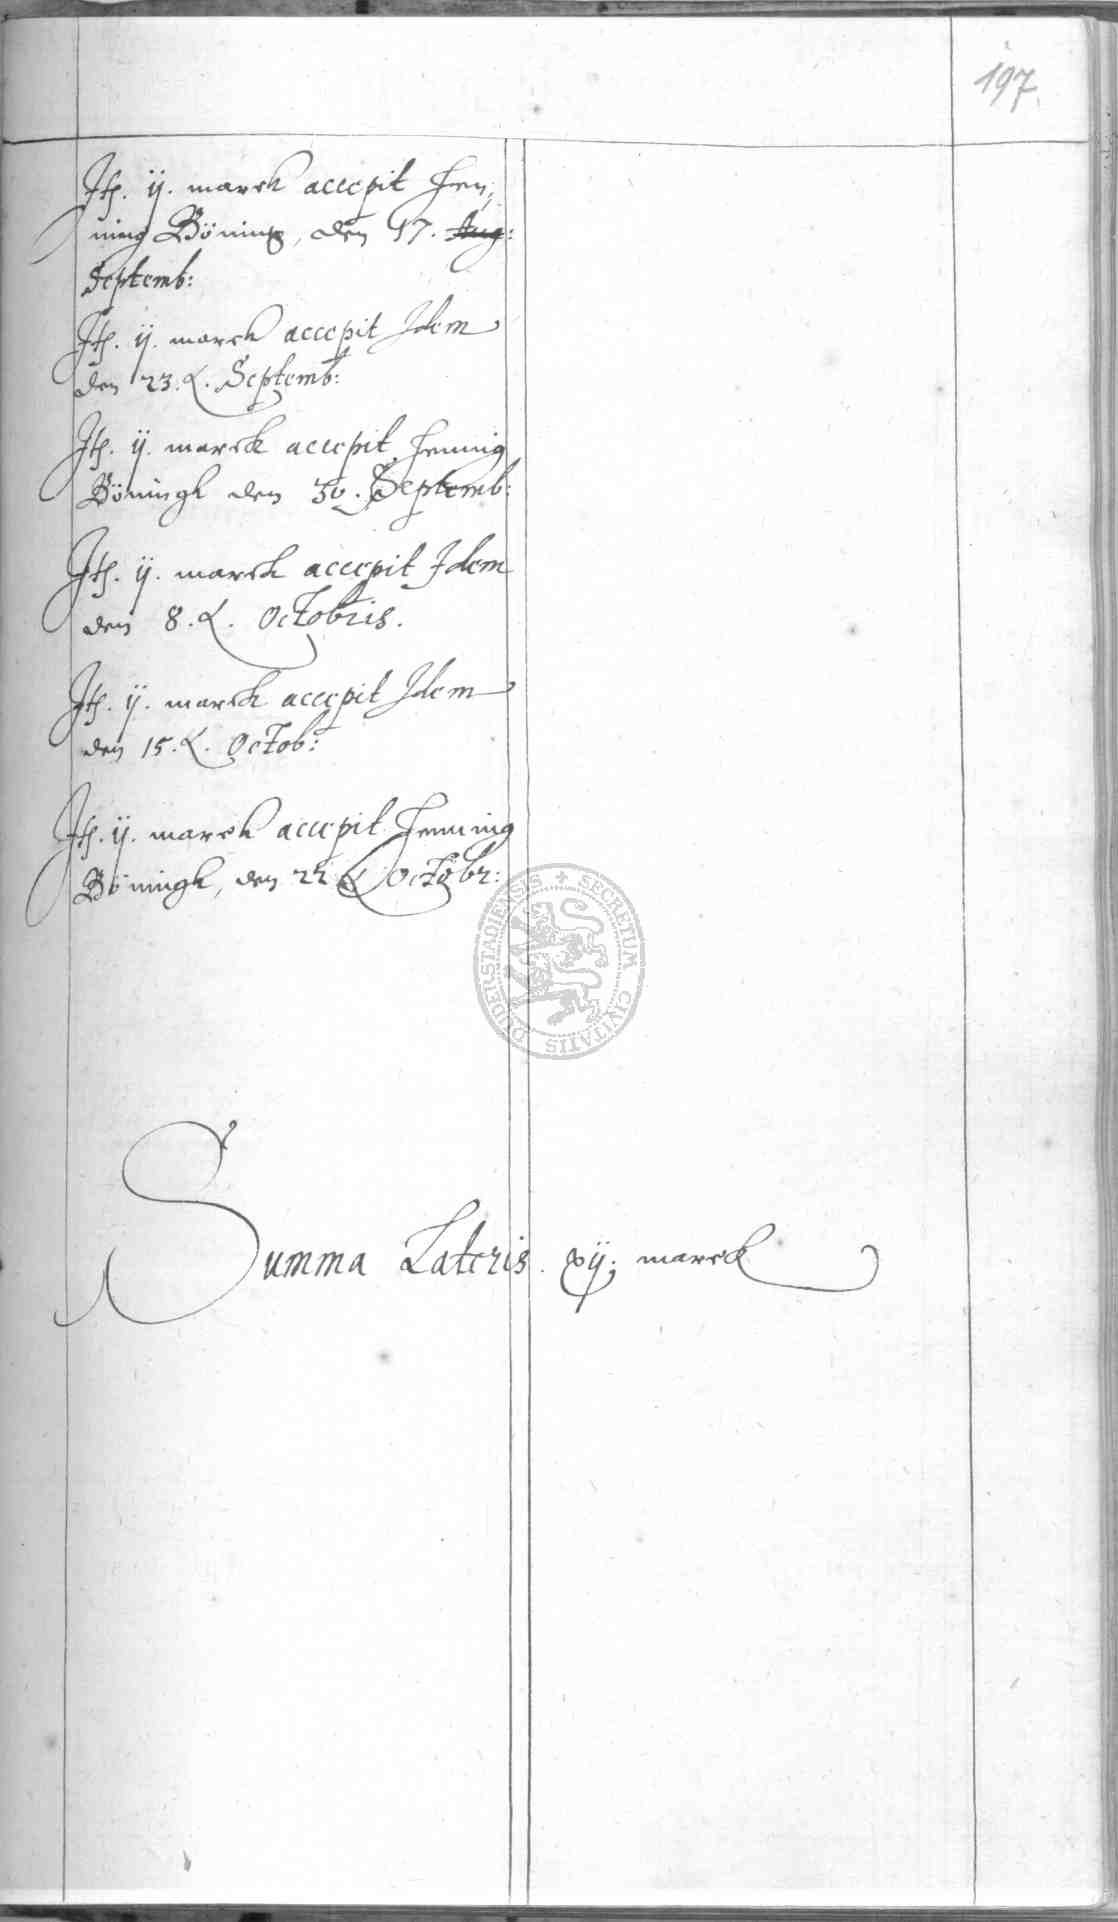 197.
Itҽ. ij. marck accepit Hen-
ning Böning, den 17. Aug:
Septemb:
Itҽ. ij. marck accepit Idem
den 23. Septemb:
Itҽ. ij. marck accepit Hennig
Böningk den 30. Septemb:
Itҽ. ij. marck accepit Idem
den 8. Octobris.
Itҽ. ij. marck accepit Idem
den 15. Octob:
Itҽ. ij. marck accepit Henning
Böningk, den 22 Octobr:
SECRETUM CIVITATIS DUDERSTADIENSIS
Summa Lateris. xij; marck